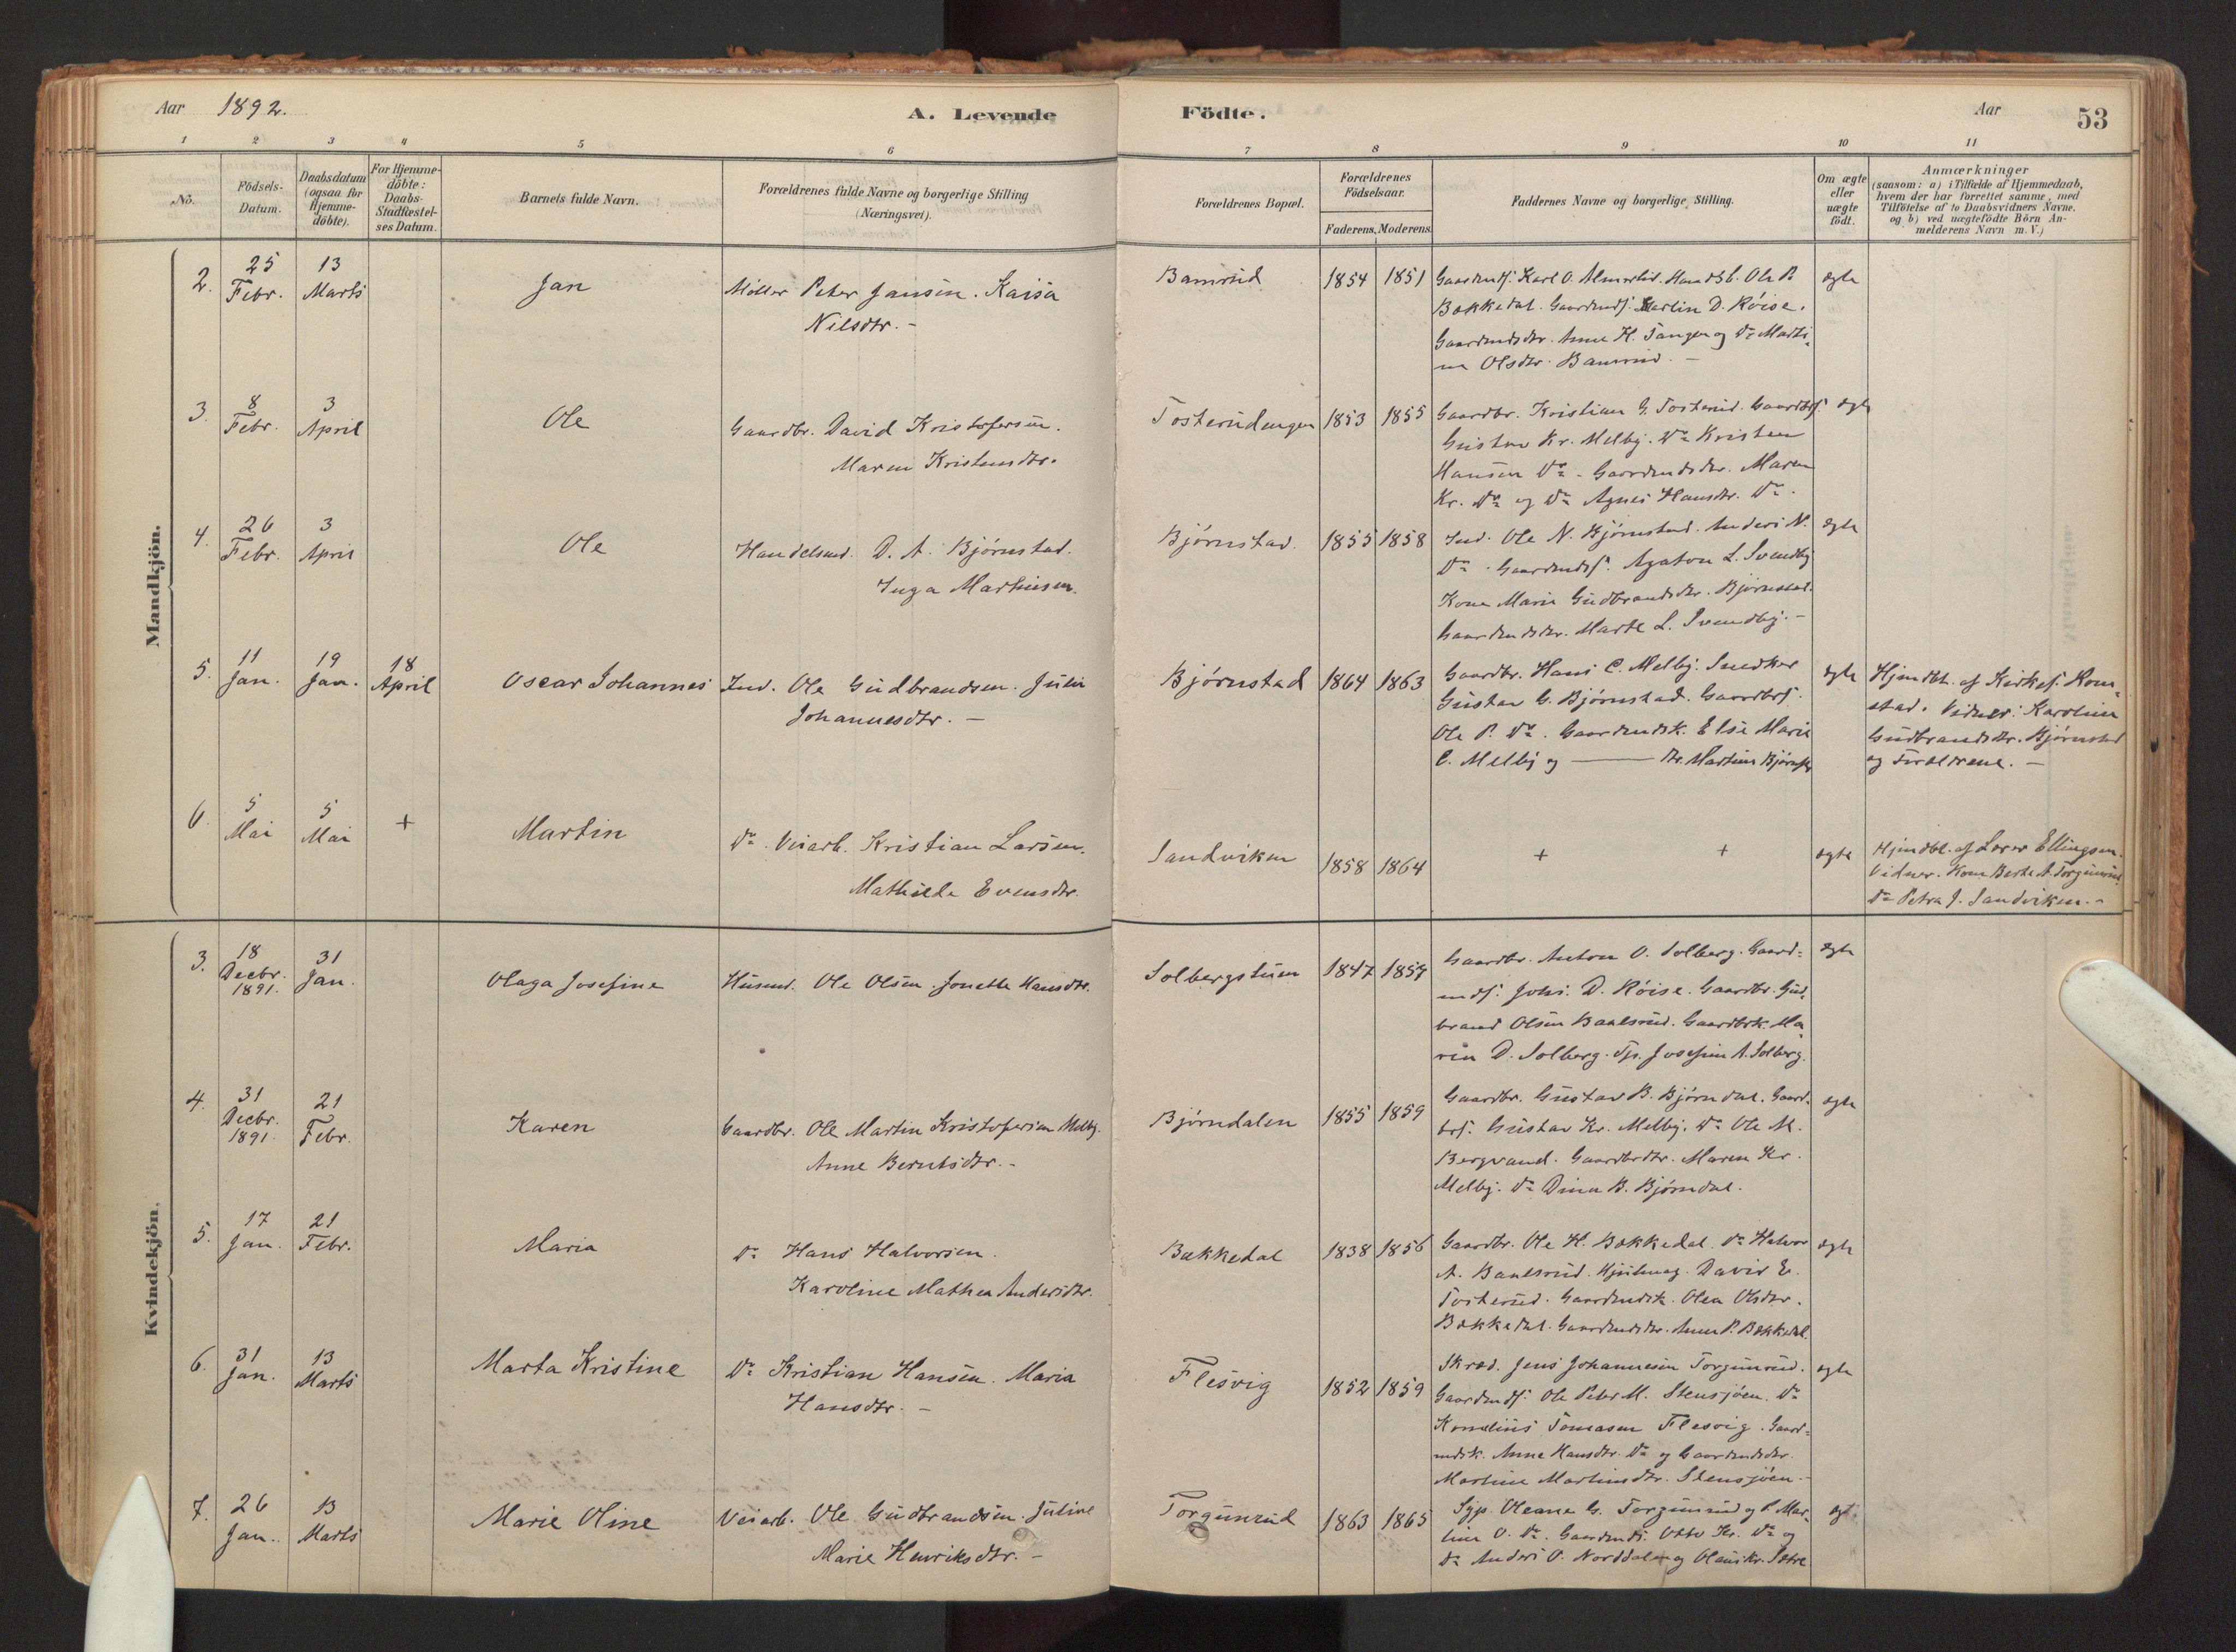 Aar 1892.
A. Levende Födte.
Aar
53
1 2 3 4 5 6 7 8 9 10 11
No.
Födsels-
Datum.
Daabsdatum
(ogsaa for
Hjemme-
döbte).
For Hjemme-
döbte:
Daabs-
Stadfæstel-
ses Datum.
Barnets fulde Navn.
Forældrenes fulde Navne og borgerlige Stilling
(Næringsvei).
Forældrenes Bopæl.
Forældrenes
Födselsaar.
Faderens. Moderens.
Faddernes Navne og borgerlige Stilling.
Om ægte
eller
uægte
födt.
Anmærkninger
(saasom: a) i Tilfælde af Hjemmedaab,
hvem der har forrettet samme, med
Tilföielse af to Daabsvidners Navne.
og b) ved uægtefödte Börn An-
melderens Navn m. V.)
Mandkjön.
2.
25
Febr.
13
Marts
Jan
Møller Peter Jansen. Kaisa
Nilsdtr. -
Bamrud
1854 1851
Gaardmds. Karl O. Ole P.
Bækkedal. Gaardmds. Martin D. Røise.
Gaardmdsdtr. Anne H. Tangen og Do Marti-
ne Olsdtr. Bamrud. -
ægte
3.
8
Febr.
3
April
Ole
Gaardbr. David Kristofersen.
Maren Kristensdtr.
Tosterudengen
1853 1855
Gaardbr. Kristian G. Tosterud. Gaardbrs.
Gustav Kr. Melby. Do Kristen
Hansen Do. Gaardmdsdtr. Maren
Kr. Do og Do Agnes Hansdtr. Do.
ægte
4.
26
Febr.
3
April
Ole
Handelsmd. D. A. Bjørnstad.
Inga Marthinsen.
Bjørnstad.
1855 1858
Ind. Ole N. Bjørnstad. Anders N.
Do. Gaardmdss. Agaton L. Svendby
Kone Marie Gudbrandsdtr. Bjørnstad.
Gaardmdsdtr. Marte L. Svendby. -
ægte
5.
11
Jan.
19
Jan.
18
April
Oscar Johannes
Ind. Ole Gudbrandsen. Julie
Johannesdtr. -
Bjørnstad
1864 1863
Gaardbr. Hans C. Melby. Snedker
Gustav G. Bjørnstad. Gaardbrs.
Ole P. Do. Gaardmdsk. Else Marie
C. Melby og — dtr. Martine Bjørnst.
ægte
Hjmdbt. af Kirkes. Rom-
stad. Vidner: Karoline
Gudbrandsdtr. Bjørnstad
og Forældrene. -
6
5
Mai
5
Mai
+
Martin
Do. Veiarb. Kristian Larsen.
Mathilde Evensdtr.
Sandviken
1858 1864
+ +
ægte
Hjmdbt. af Lærer Ellingsen.
Vidner. Kone Berte A. Torgunrud.
Do Petra J. Sandviken. -
Kvindekjön.
3.
18
Decbr.
1891.
31
Jan.
Olaga Josefine
Husmd. Ole Olsen. Jonette Hansdtr.
Solbergstuen
1847 1857
Gaardbr. Anton O. Solberg. Gaard-
mds. Johs. D. Røise. Gaardbr. Gud-
brand Olsen Baalsrud. Gaardbrk. Ma-
rie D. Solberg. Tjp. Josefine A. Solberg.
ægte
4.
31
Decbr.
1891.
21
Febr.
Karen
Gaardbr. Ole Martin Kristofersen Melby.
Anne Berntsdtr. -
Bjørndalen
1855 1859
Gaardbr. Gustav B. Bjørndal. Gaard-
brs. Gustav Kr. Melby. Do Ole M.
Bergvand. Gaardbrdtr. Maren Kr.
Melby. Do Dina B. Bjørndal.
ægte
5.
17
Jan.
21
Febr.
Maria
Do Hans Halvorsen.
Karoline Mathea Andersdtr.
Bækkedal
1838 1856
Gaardbr. Ole H. Bækkedal. Do Halvor
A. Baalsrud. Hjulmag. David E.
Tosterud. Gaardmdsk. Olea Olsdtr.
Bækkedal. Gaardmdsdtr. Anne P. Bækkedal.
ægte
6.
31
Jan.
13
Marts
Marta Kristine
Do Kristian Hansen. Maria
Hansdtr. -
Flesvig
1852 1859
Skræd. Jens Johannesen Torgunrud.
Gaardmds. Ole Peter M. Stensjøen. Do
Kornelius Tomasen Flesvig. Gaard-
mdsk. Anne Hansdtr. Do og Gaardmdsdtr.
Martine Martinsdtr. Stensjøen. -
ægte
7.
26
Jan.
13
Marts
Marie Oline
Veiarb. Ole Gudbrandsen. Juline
Marie Henriksdtr. -
Torgunrud
1863 1865
Syp. Oleane G. Torgunrud og P. Mar-
tine O. Do. Gaardmds. Otto Kr. Do og
Do Anders O. Norddalen og Olaus Kr. Sætre
ægt.